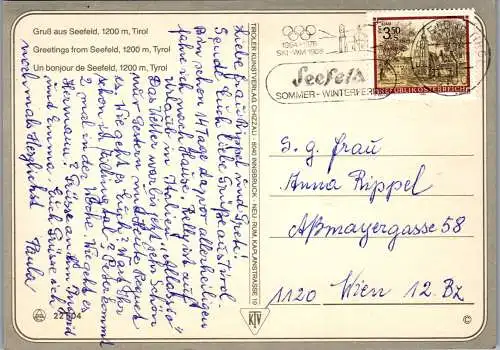 Gruß aus Seefeld, 1200 m, Tirol
Greetings from Seefeld, 1200 m, Tyrol
Un bonjour de Seefeld, 1200 m, Tyrol
Liebe Frau Rippel und Greti!
Sende Euch liebe Grüße aus Tirol.
Bin schon 14 Tage da, vor allerheiligen
fahre ich nach Hause. Rolly ist auf
Urlaub in Italien "Allassio"
Das Wetter war bis jetzt sehr schön
nur gestern und heute Regnet
es. Wie geht es Euch? Wart Ihr
schon in
2 mal in der Woche. Wie geht es
Hermann? Grüsse an Ihn, Ingrid
und Emma. Euch Grüsse ich
nochmals Herzlichst Paula
22 504
TIROLER KUNSTVERLAG CHIZZALI · 6040 INNSBRUCK - NEU-RUM, KAPLANSTRASSE 10
KTV
1964 1976
SKI-WM 1985
Seefeld
SOMMER - WINTER
3.50
REPUBLIK ÖSTERREICH
S. g. Frau
Anna Rippel
Aßmayergasse 58
1120 Wien 12. Bz
©